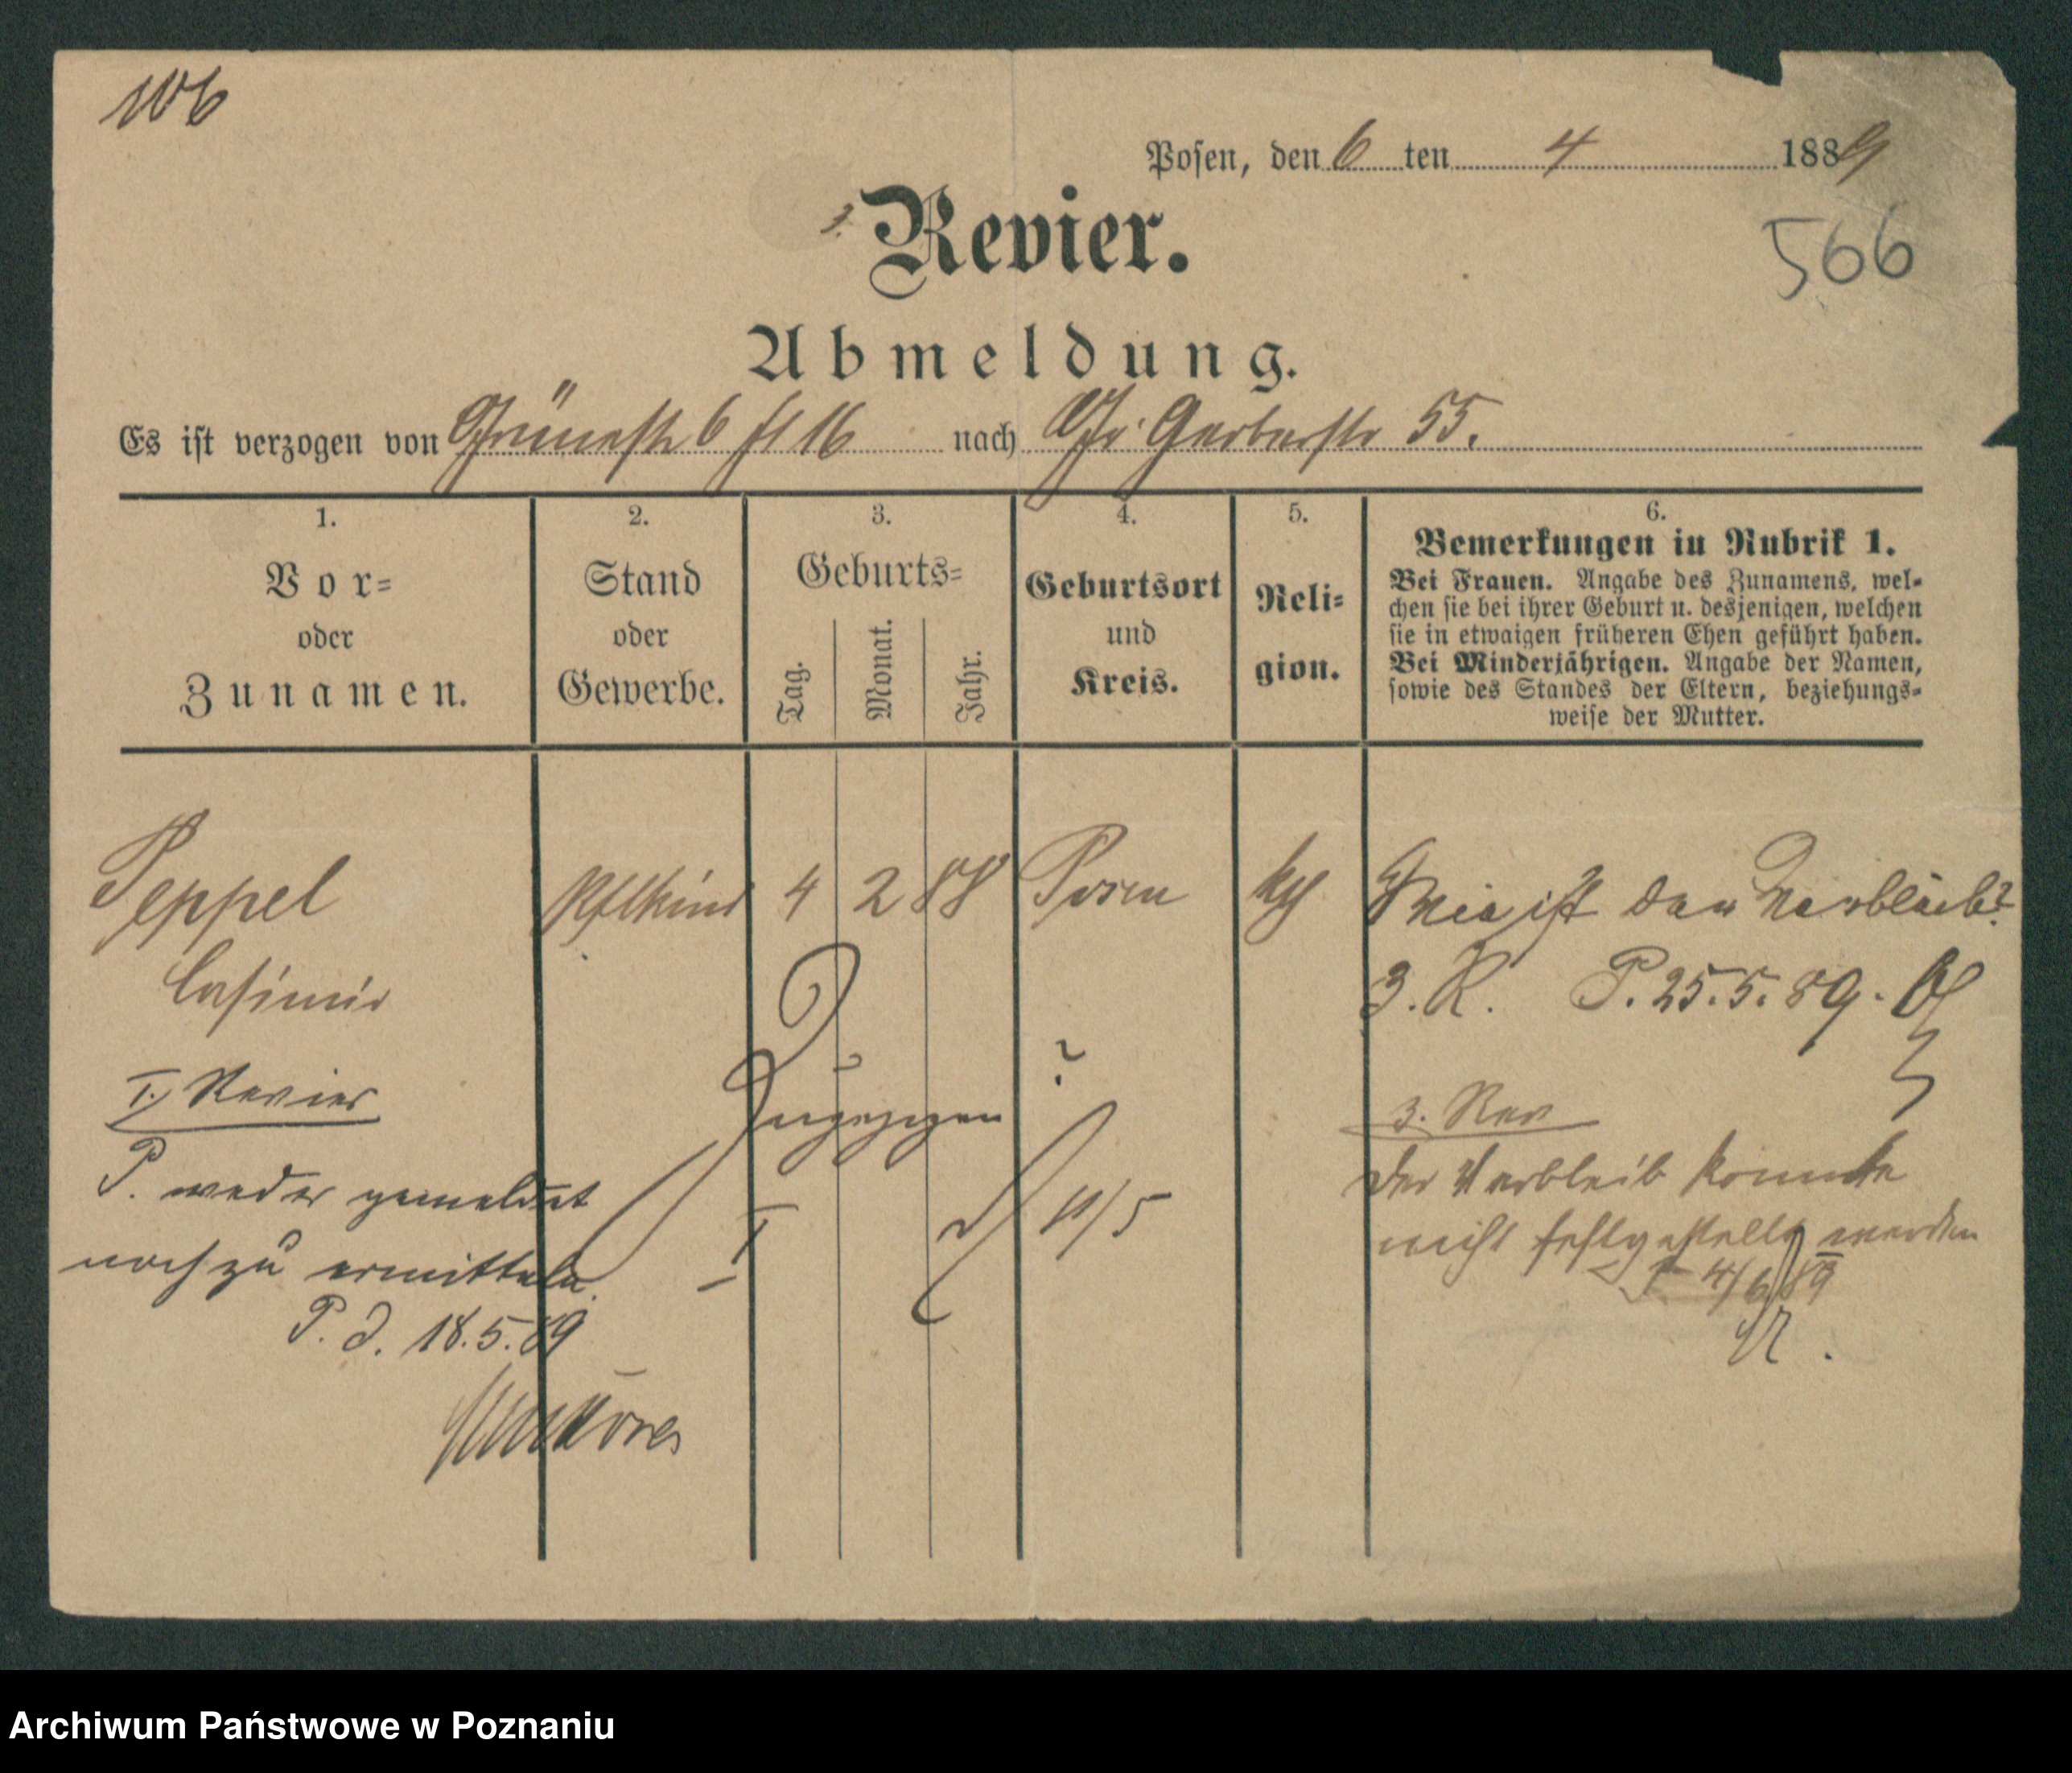 106
Posen, den 6 ten 4 1889
3. Revier.
566
Abmeldung.
Es ist verzogen von Grünestr 6 fl 16 nach Gr. Gerberstr 55.
1. 2. 3. 4. 5. 6.
Vor- oder Zunamen.
Stand oder Gewerbe.
Geburts-
Tag. Monat. Jahr.
Geburtsort und Kreis.
Religion.
Bemerkungen in Rubrik 1.
Bei Frauen. Angabe des Zunamens, wel-
chen sie bei ihrer Geburt u. desjenigen, welchen
sie in etwaigen früheren Ehen geführt haben.
Bei Minderjährigen. Angabe der Namen,
sowie des Standes der Eltern, beziehungs-
weise der Mutter.
Peppel Pflkind 4 2 88 Posen kth
Casimir
I. Revier
P. weder gemeldet
noch zu ermitteln.
P. d. 18.5.89
Zugezogen ?
I 11/5
ist der Verbleib?
3. R. P. 25.5.89.
3. Rev
Der Verbleib konnte
nicht festgestellt werden
4/6 89
Archiwum Państwowe w Poznaniu